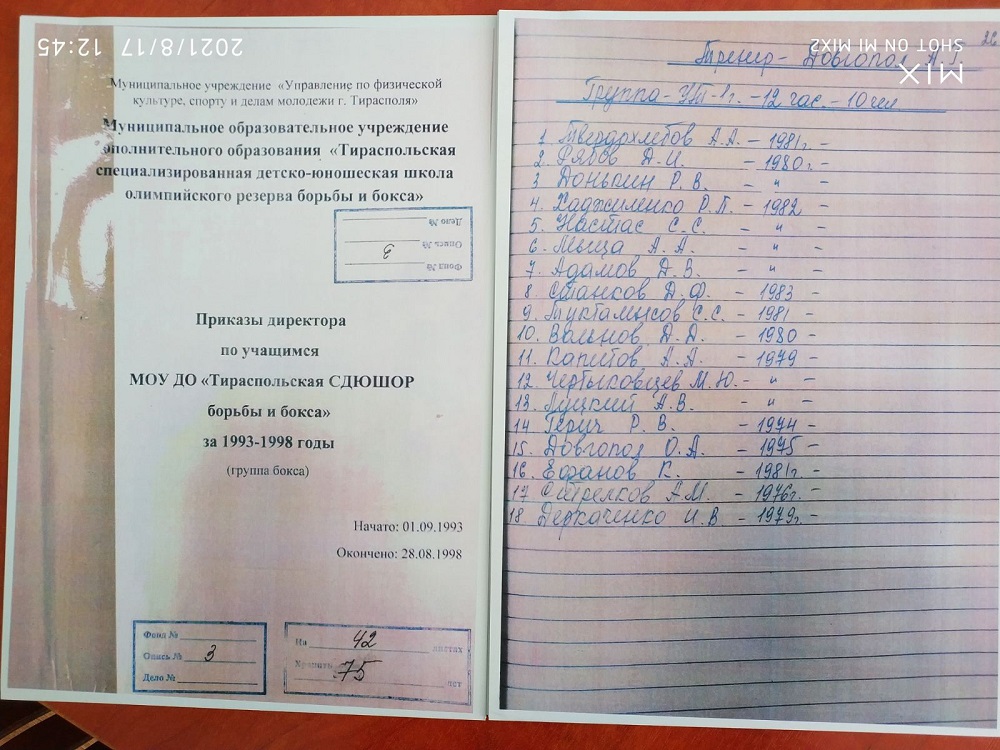 2021/8/17 12:45
Муниципальное учреждение «Управление по физической
культуре, спорту и делам молодежи г. Тирасполя»
Муниципальное образовательное учреждение
ополнительного образования «Тираспольская
специализированная детско-юношеская школа
олимпийского резерва борьбы и бокса»
Дело №
Опись № 3
Фонд №
Приказы директора
по учащимся
МОУ ДО «Тираспольская СДЮШОР
борьбы и бокса»
за 1993-1998 годы
(группа бокса)
Начато: 01.09.1993
Окончено: 28.08.1998
Фонд №
Опись № 3
Дело №
На 42 листах
Хранить 75 лет
SHOT ON MI MIX2
MIX
Тренер - Довгопол А.Г.
Группа - УТ - г. - 12 час. - 10 чел
1. Твердохлебов А.А. - 1981г. -
2. Рябов Д.И. - 1980г. -
3 Донькин Р.В. - " -
4. Хаджиленко Р.П. - 1982 -
5. Настас С.С. - " -
6. Мыца А.А. - " -
7. Адамов Д.В. - " -
8 Станков Д.Ф. - 1983 -
9. С.С. - 1981 -
10. Вольнов Д.Д. - 1980 -
11. Капитов А.А - 1979
12. Чертыковцев М.Ю. - " -
13. Луцкий А.В. - " -
14 Р.В. - 1974 -
15. Довгопол О.А. - 1975 -
16. Ефанов К. - 1981г. -
17 А.М. - 1976г. -
18 Деркаченко И.В - 1979г. -